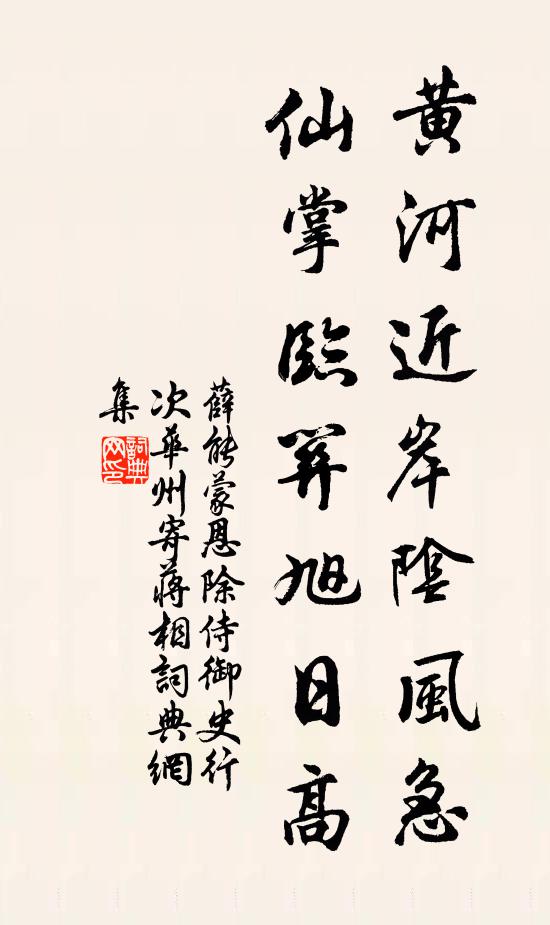 黃河近岸陰風急
仙掌臨關旭日高
薛能蒙恩除侍御史行
次華州寄蔣相詞典網
集
詞典網印